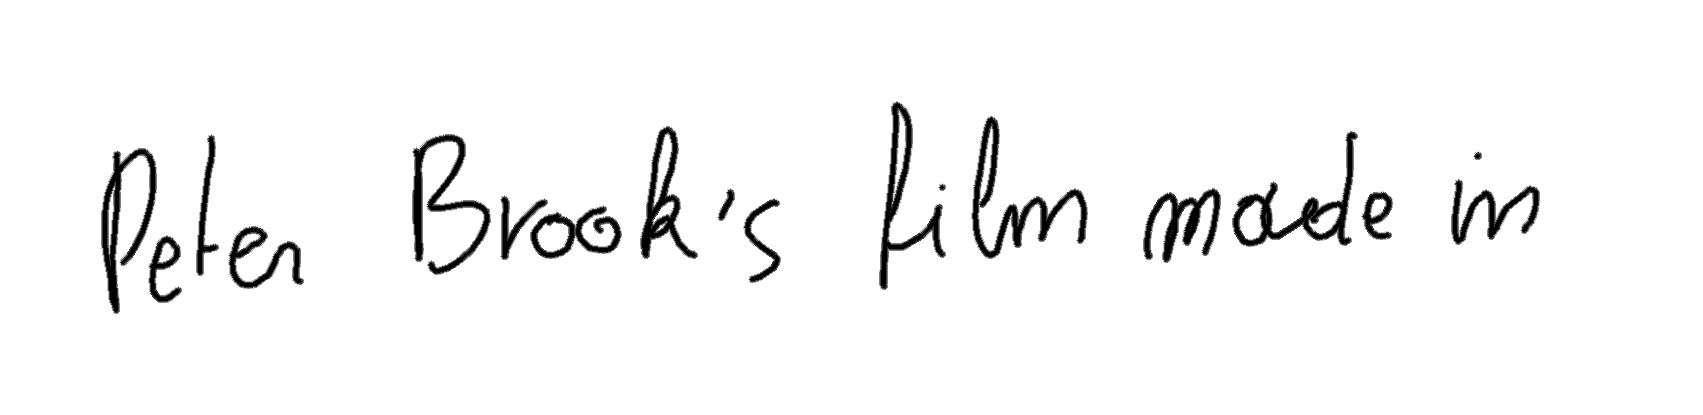 Peter Brook's film made in